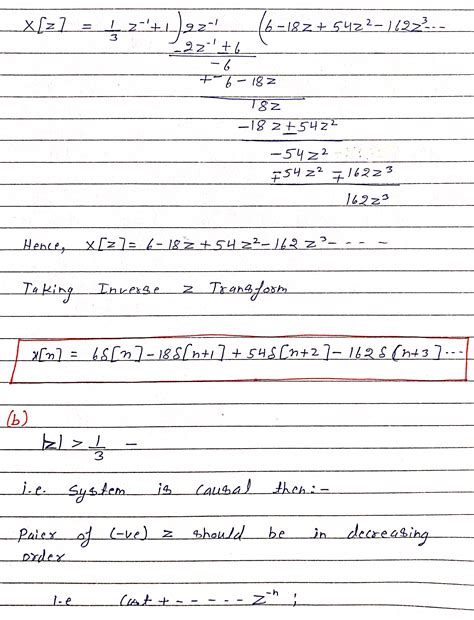 X[z] = 1/3 z⁻¹+1 ) 2z⁻¹ ( 6-18z+54z²-162z³...
-2z⁻¹+6
-6
+-6-18z
18z
-18z±54z²
-54z²
∓54z² ∓162z³
162z³
Hence, X[z] = 6-18z+54z²-162z³- - - -
Taking Inverse z Transform
x[n] = 6δ[n]-18δ[n+1]+54δ[n+2]-162δ[n+3]...
(b)
|z| > 1/3 -
i.e. system is causal then:-
Paier of (-ve) z should be in decreasing
order
i.e Const + - - - - - z⁻ⁿ ;